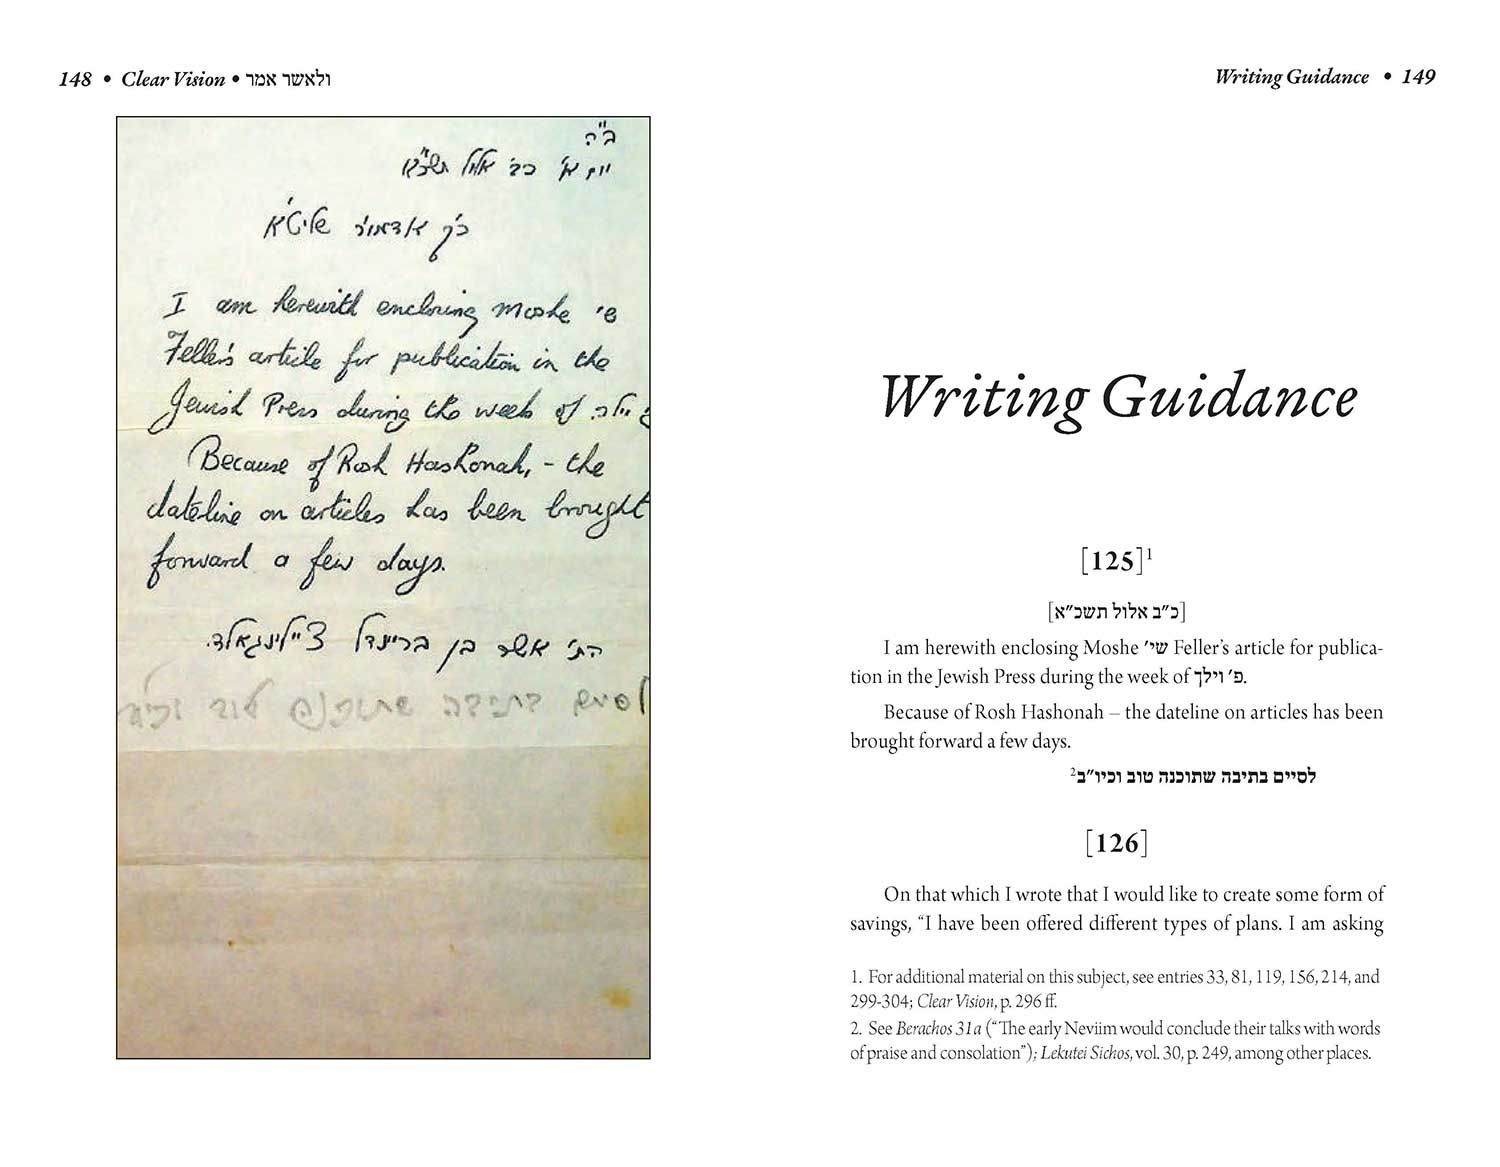 148 • Clear Vision • ולאשר אמר
ב"ה
יום א' כב' אלול תשכ"א
כ"ק אדמו"ר שליט"א
I am herewith enclosing Moshe שי'
Feller's article for publication in the
Jewish Press during the week of וילך.
Because of Rosh Hashonah, - the
dateline on articles has been brought
forward a few days.
הת' אשר בן בריינדל צייילינגאלד.
לסיים בתיבה שתוכנה טוב וכיו"
Writing Guidance • 149
Writing Guidance
[125]¹
[כ״ב אלול תשכ״א]
I am herewith enclosing Moshe שי' Feller's article for publica-
tion in the Jewish Press during the week of פ' וילך.
Because of Rosh Hashonah – the dateline on articles has been
brought forward a few days.
לסיים בתיבה שתוכנה טוב וכיו״ב²
[126]
On that which I wrote that I would like to create some form of
savings, “I have been offered different types of plans. I am asking
1. For additional material on this subject, see entries 33, 81, 119, 156, 214, and
299-304; Clear Vision, p. 296 ff.
2. See Berachos 31a (“The early Neviim would conclude their talks with words
of praise and consolation”); Lekutei Sichos, vol. 30, p. 249, among other places.